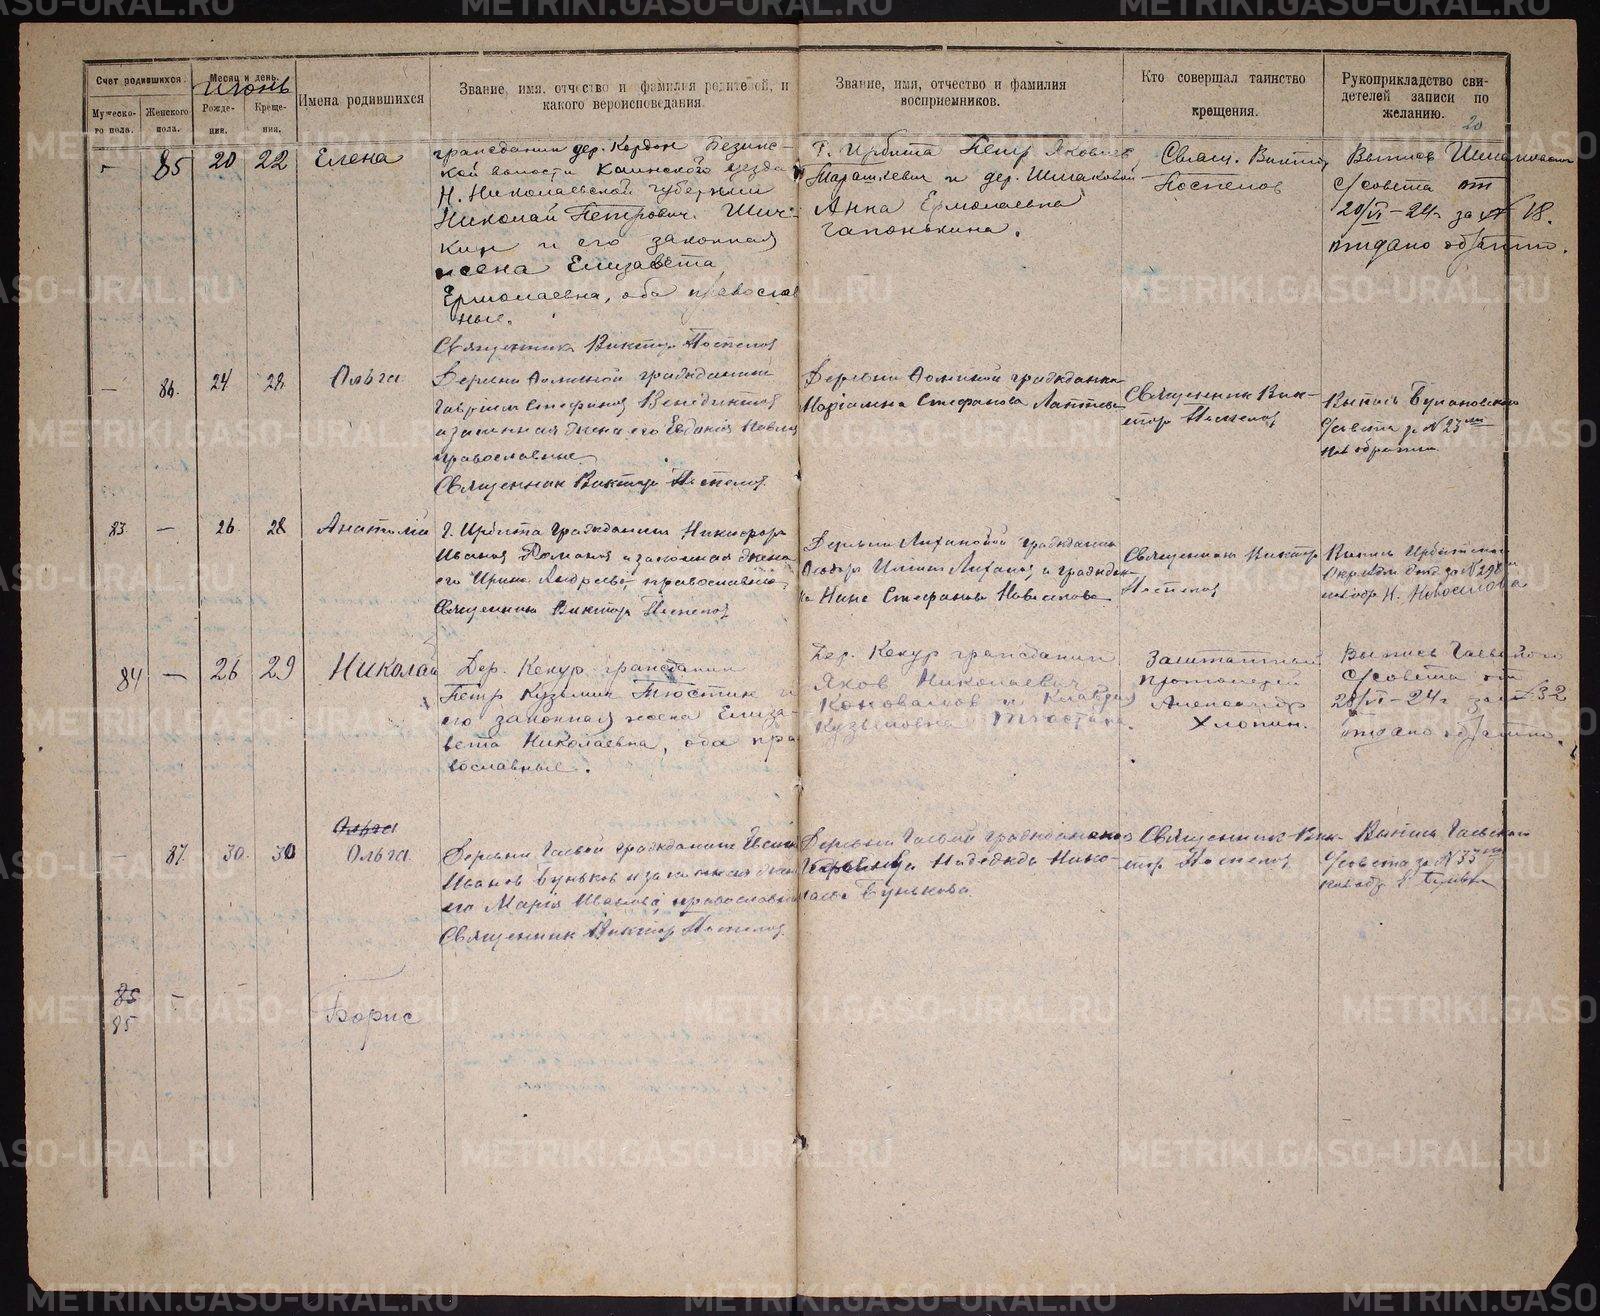 Счет родившихся.
Мужеско-
го пола.
Женского
пола.
Месяц и день.
Июнь
Рожде-
ния.
Креще-
ния.
Имена родившихся
Звание, имя, отчество и фамилия родителей, и
какого вероисповедания.
Звание, имя, отчество и фамилия
восприемников.
Кто совершал таинство
крещения.
Рукоприкладство сви-
детелей записи по
желанию.
20
- 85 20 22 Елена
гражданин дер. Кордон
кой волости Каинского уезда
Н. Николаевской губернии
Николай Петрович Шич-
кин и его законная
жена Елизавета
Ермолаевна, оба православ
ные.
Священник Виктор Поспелов
Г. Ирбита Петр Яковлев
и дер. Шмаковой
Анна Ермолаевна
Гапонькина.
Свящ. Виктор
Поспелов
Выпись Шмаковского
с/совета от
20/VI-24г. за № 18.
отдано обратно.
- 86. 24 28 Ольга
Деревни гражданин
Гавриил Стефанов Венедиктов
и законная жена его Евдокия Павлова
православные
Священник Виктор Поспелов
Деревни гражданка
Стефанова Лаптева
Священник Вик-
тор Поспелов
Выпись
с/совета з. N 23
обратно
83 - 26 28 Анатолий
Г. Ирбита гражданин Никифор
Иванов и законная жена
его Ирина Андреева, православные
Священник Виктор Поспелов
Деревни гражданин
Феодор и граждан-
ка Нина Стефанова
Священник Виктор
Поспелов
Выпись Ирбитского
за N 298
84 - 26 29 Николай
Дер. Кекур гражданин
Петр Кузьмич Тюстин и
его законная жена Елиза-
вета Николаевна, оба пра
вославные.
Дер. Кекур гражданин
Яков Николаевич
Коновалов и Клавдия
Кузьмовна Тюстина.
Заштатный
протоиерей
Александр
Хлопин.
Выпись Гаевского
с/совета от
28/VI-24г. за № 32
отдано обратно.
Ольга
- 87. 30. 30 Ольга
Деревни Гаевой гражданин
Иванов Буньков и законная жена
его Мария Иванова, православные
Священник Виктор Поспелов
Деревни Гаевой гражданка
Надежда Нико-
лаева Бунькова
Священник Вик-
тор Поспелов
Выпись Гаевского
с/совета за N 33
85 -
85
Борис
METRIKI.GASO-URAL.RU